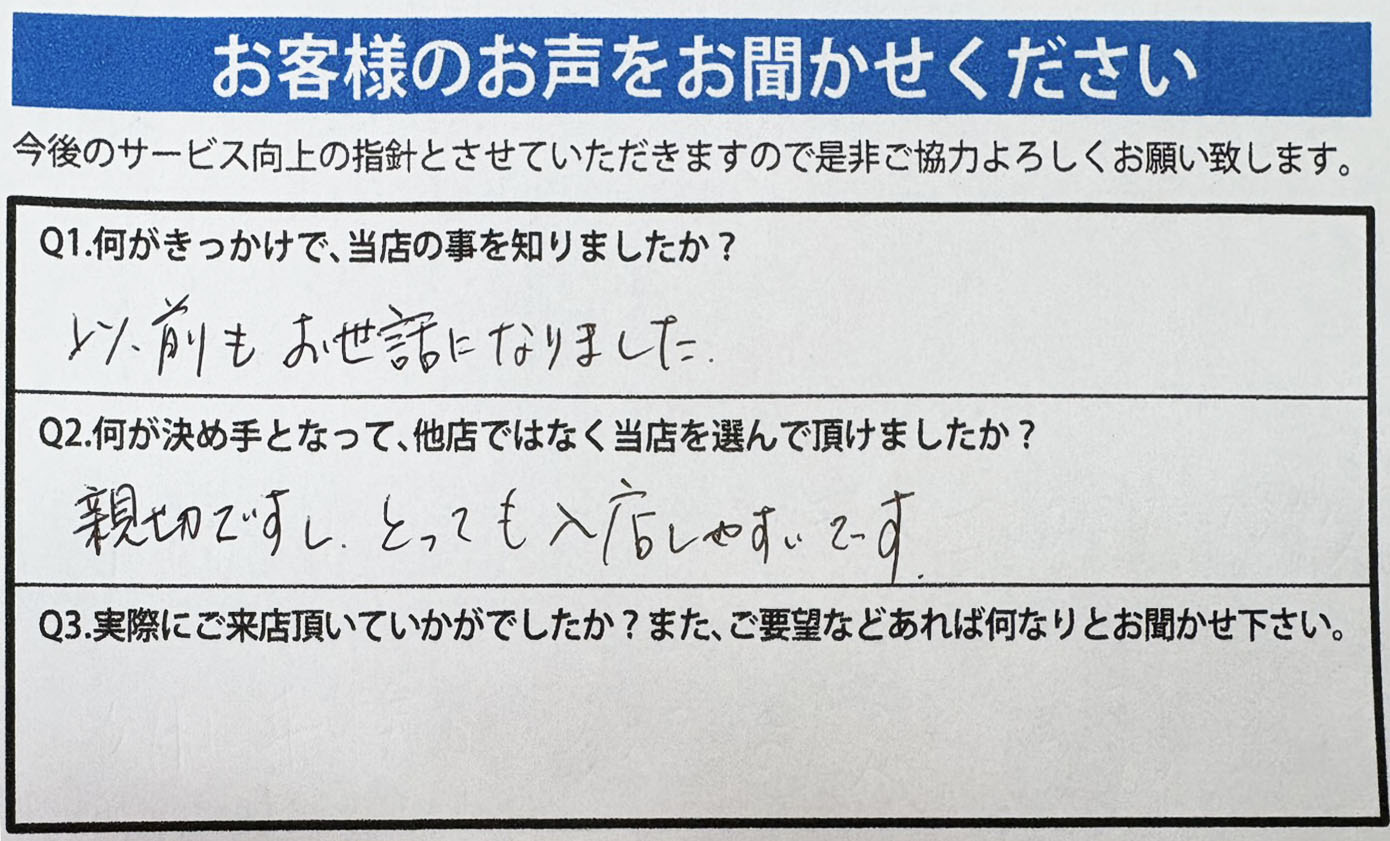 お客様のお声をお聞かせください
今後のサービス向上の指針とさせていただきますので是非ご協力よろしくお願い致します。
Q1.何がきっかけで、当店の事を知りましたか？
以前もお世話になりました.
Q2.何が決め手となって、他店ではなく当店を選んで頂けましたか？
親切ですし.とっても入店しやすいです.
Q3.実際にご来店頂いていかがでしたか？また、ご要望などあれば何なりとお聞かせ下さい。